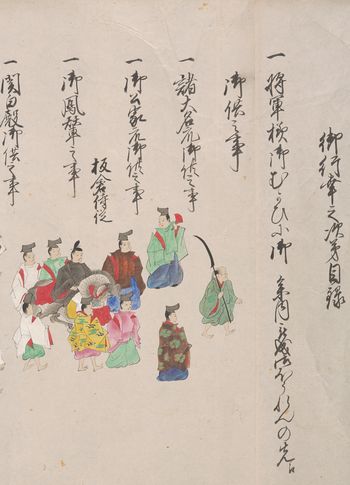 御行幸之次第目録
一 将軍様御むかひに御
御供之事
一 諸大名衆御供之事
一 御公家衆御供之事
板倉侍従
一 御鳳輦之事
一 関白殿御供之事